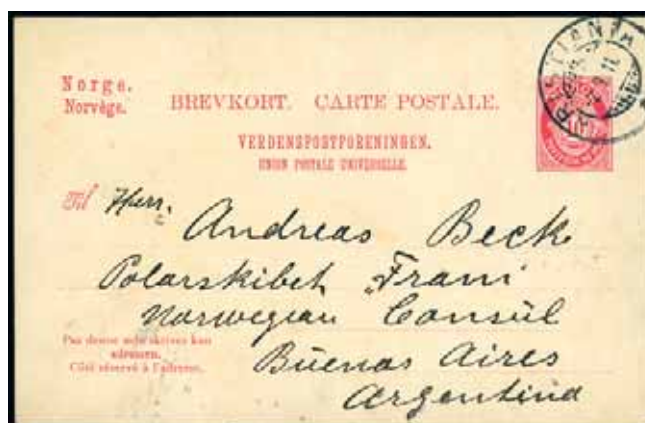 Norge.
Norvège.
BREVKORT. CARTE POSTALE.
VERDENSPOSTFORENINGEN.
UNION POSTALE UNIVERSELLE.
Til Herr.
Andreas Beck
Polarskibet „Fram"
Norwegian Consul
Buenos Aires
Argentina
Paa denne side skrives kun
adressen.
Côté réservé à l'adresse.
KRISTIANIA